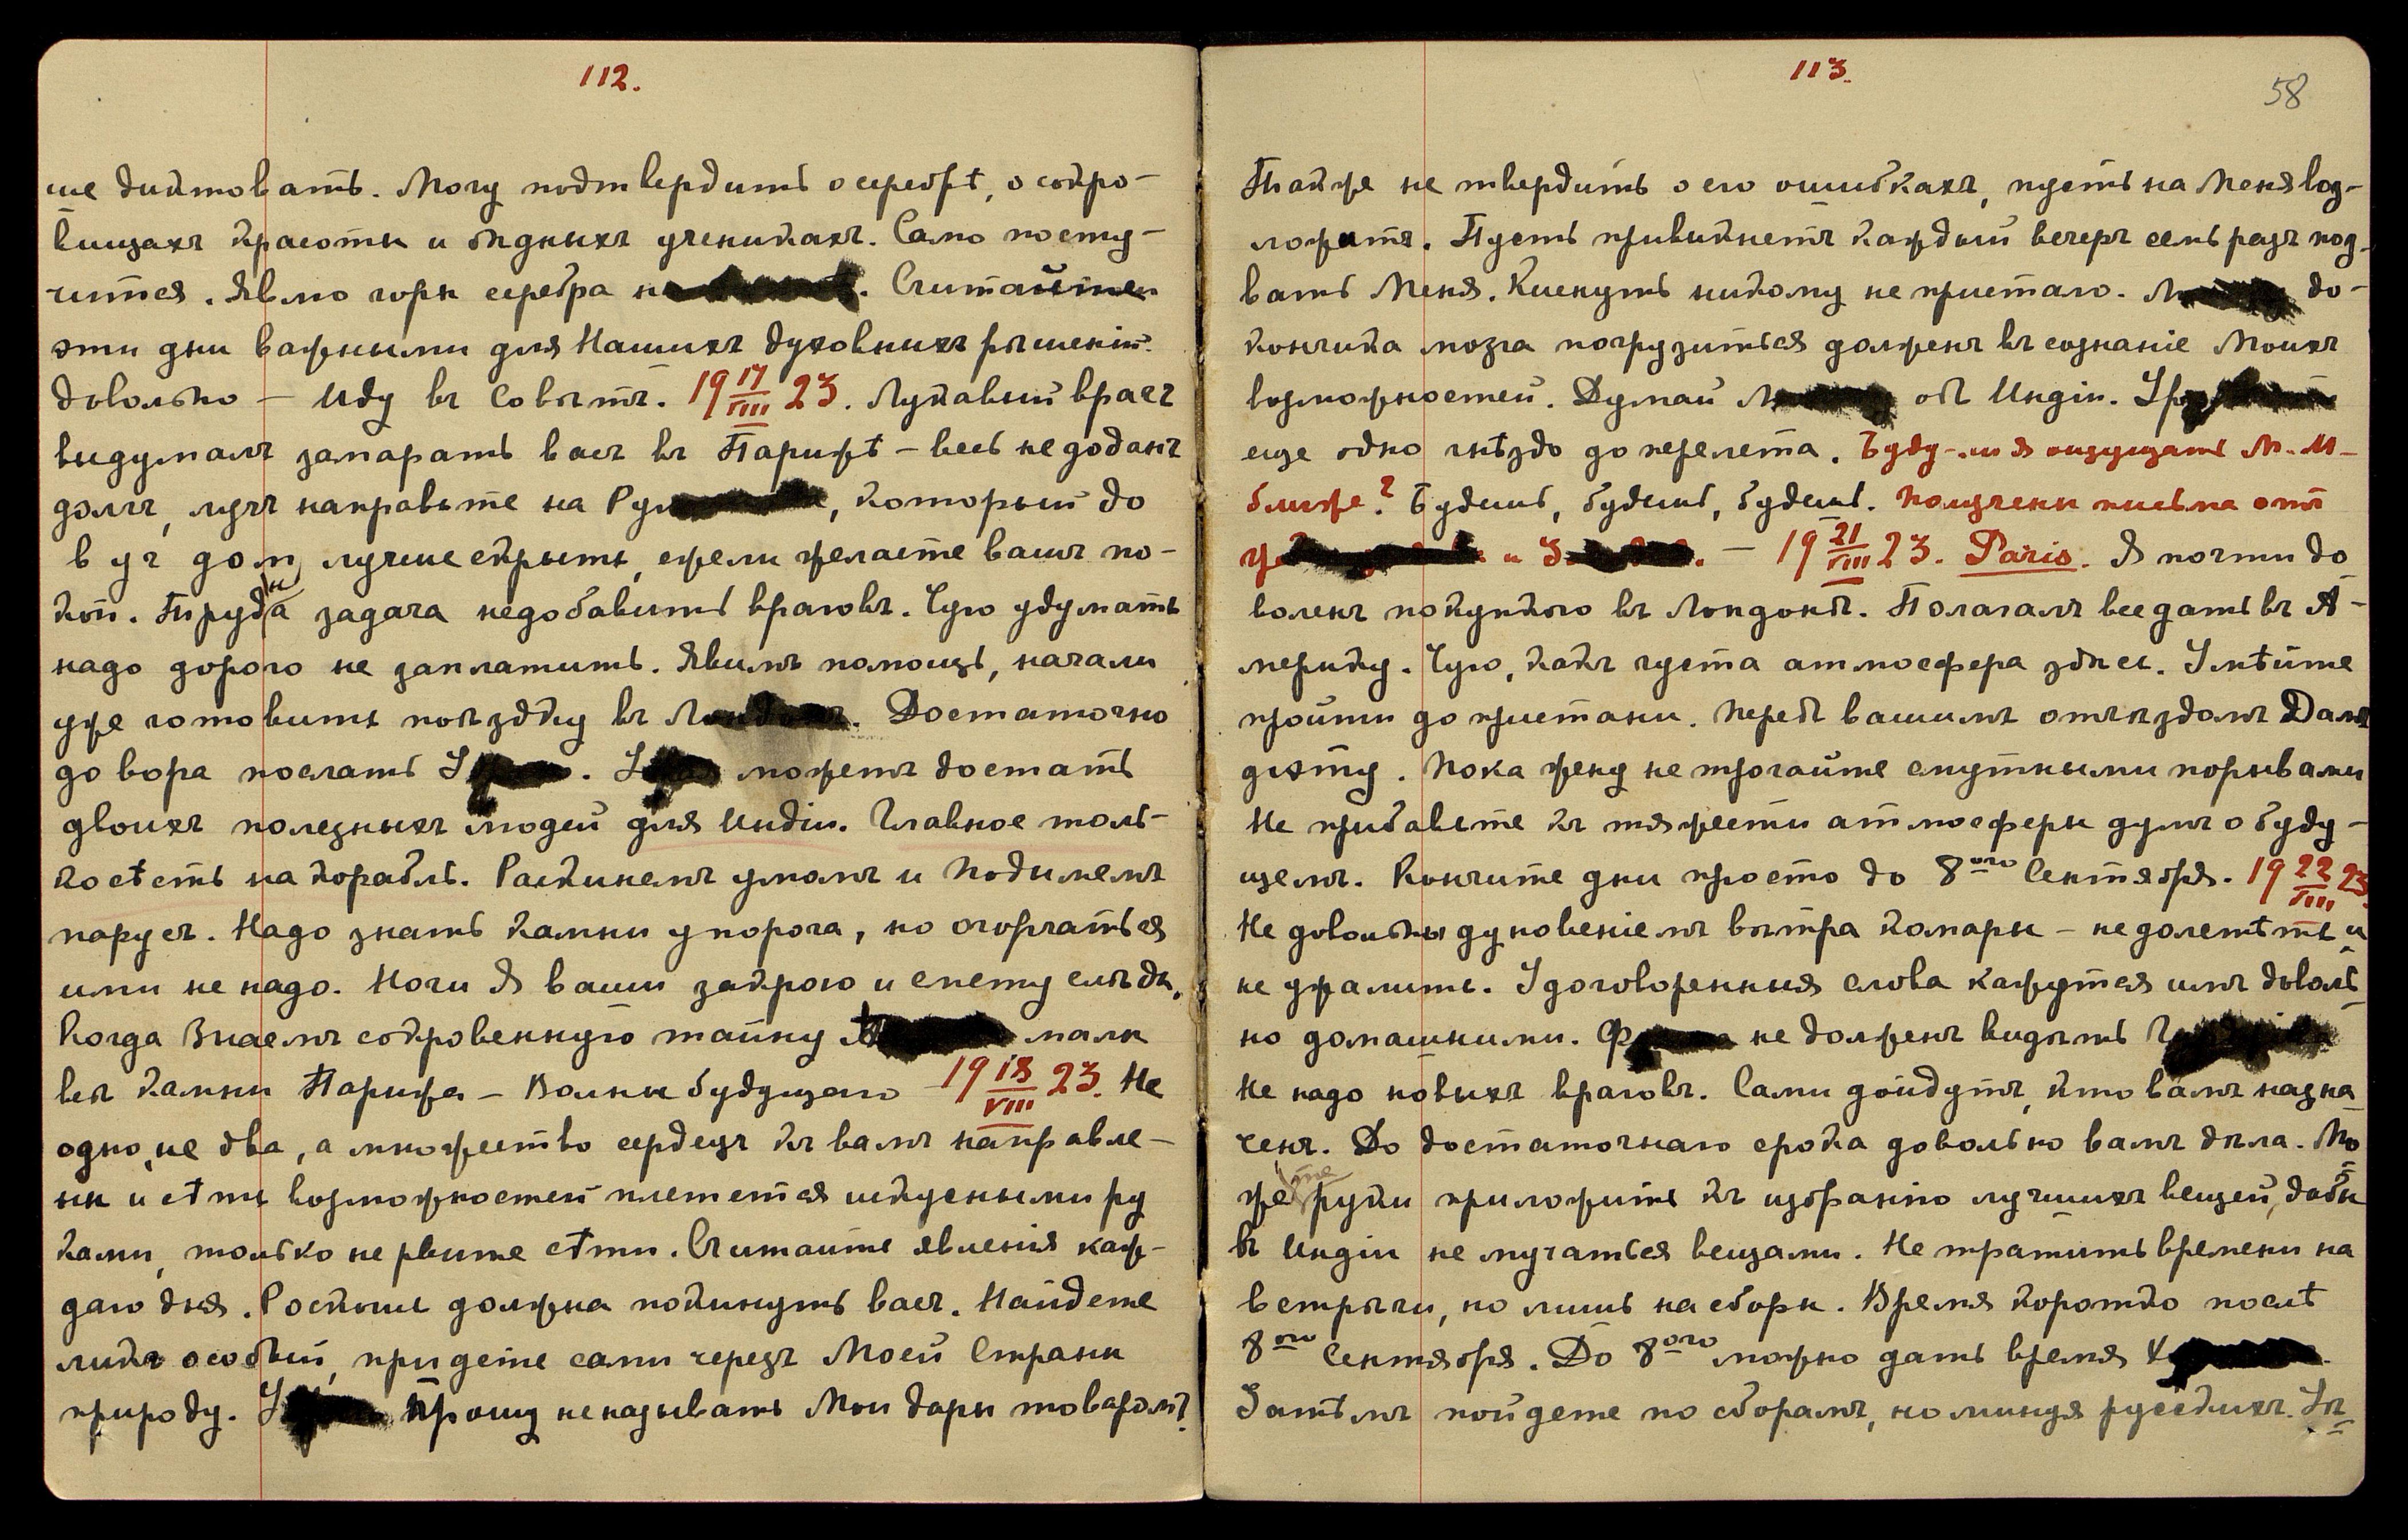 112.
ше диктовать. Могу подтвердить о серебрѣ, о сокро-
вищахъ красоты и бѣдныхъ ученикахъ. Само посту-
чится. Явлю горы серебра . Считайте
эти дни важными для Нашихъ духовныхъ рѣшеній.
Довольно – Иду въ Совѣтъ. 19 17/VIII 23. Лукавый врагъ
выдумалъ замарать васъ въ Парижѣ – весь не доданъ
долгъ, лучъ направьте на , который до
вуч дом лучше скрыть, ежели желаете вашъ по-
кой. Трудна задача недобавить враговъ. Чую удумать
надо дорого не заплатить. Явимъ помощь, начали
уже готовить поѣздку въ Лондонъ. Достаточно
до вора послать . можетъ достать
двоихъ полезныхъ людей для Индіи. Главное толь-
ко сѣсть на корабль. Раскинемъ умомъ и подымемъ
парусъ. Надо знать камни у порога, но огорчаться
ими не надо. Ночи Я ваши закрою и смету слѣды.
Когда Знаемъ сокровенную тайну малы
всѣ камни Парижа – Волны будущаго – 19 18/VIII 23. Не
одно, не два, а множество сердецъ къ вамъ направле-
ны и сѣть возможностей плетется искусными ру
ками, только не рвите сѣти. Считайте явленія каж-
даго дня. Роскошь должна покинуть васъ. Найдете
ликъ особый, придете сами черезъ Моей Страны
природу. Прошу не называть Мои дары товаромъ.
113.
58
Также не твердить о его ошибкахъ, пусть на Меня воз-
ложатъ. Пусть привыкнетъ каждый вечеръ семь разъ поз-
вать Меня. Киснуть никому не пристало. до-
кончика мозга погрузиться долженъ въ сознаніе Моихъ
возможностей. Думай объ Индіи.
еще одно гнѣздо до перелета. Буду-ли я ощущать М.М.
ближе? Будешь, будешь, будешь. Получены письма отъ
и . – 19 21/VIII 23. Paris. Я почти до
воленъ покупкою въ Лондонѣ. Полагалъ все дать въ А-
мерику. Чую, какъ густа атмосфера здѣсь. Умѣйте
пройти до пристани. Передъ вашимъ отъѣздомъ Дамъ
діэту. Пока жену не трогайте смутными порывами
Не прибавьте къ тяжести атмосферы думъ о буду-
щемъ. Кончите дни просто до 8ого Сентября. 19 22/VIII 23.
Не довольны дуновеніемъ вѣтра комары – не долетѣть и
не ужалить. Удоговоренныя слова кажутся имъ доволь
но домашними. не долженъ видѣть
Не надо новыхъ враговъ. Сами дойдутъ, кто вамъ назна
ченъ. До достаточнаго срока довольно вамъ дѣла. Мо
жете руки приложить къ избранію лучшихъ вещей, дабы
въ Индіи не мучаться вещами. Не тратить времени на
встрѣчи, но лишь на сборы. Время коротко послѣ
8ого Сентября. До 8ого можно дать время
Затѣмъ пойдете по сборамъ, но минуя русскихъ.